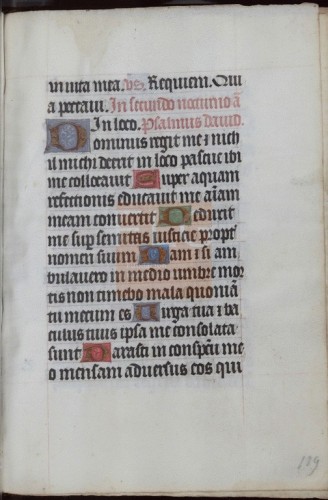 in vita mea. vs. Requiem. Qui
a peccavi. In secundo nocturno añ
In loco. Psalmus david.
Dominus regit me ⁊ nich
il michi deerit in loco pascue ibi
me collocavit Super aquam
refectionis educavit me aiam
meam convertit Deduxit
me sup semitas iusticie propt
nomen suum Nam ⁊ si am
bulavero in medio umbre mor
tis non timebo mala quoniā
tu mecum es Virga tua ⁊ ba
culus tuus ipsa me consolata
sunt Parasti in conspcu me
o mensam adversus eos qui
189